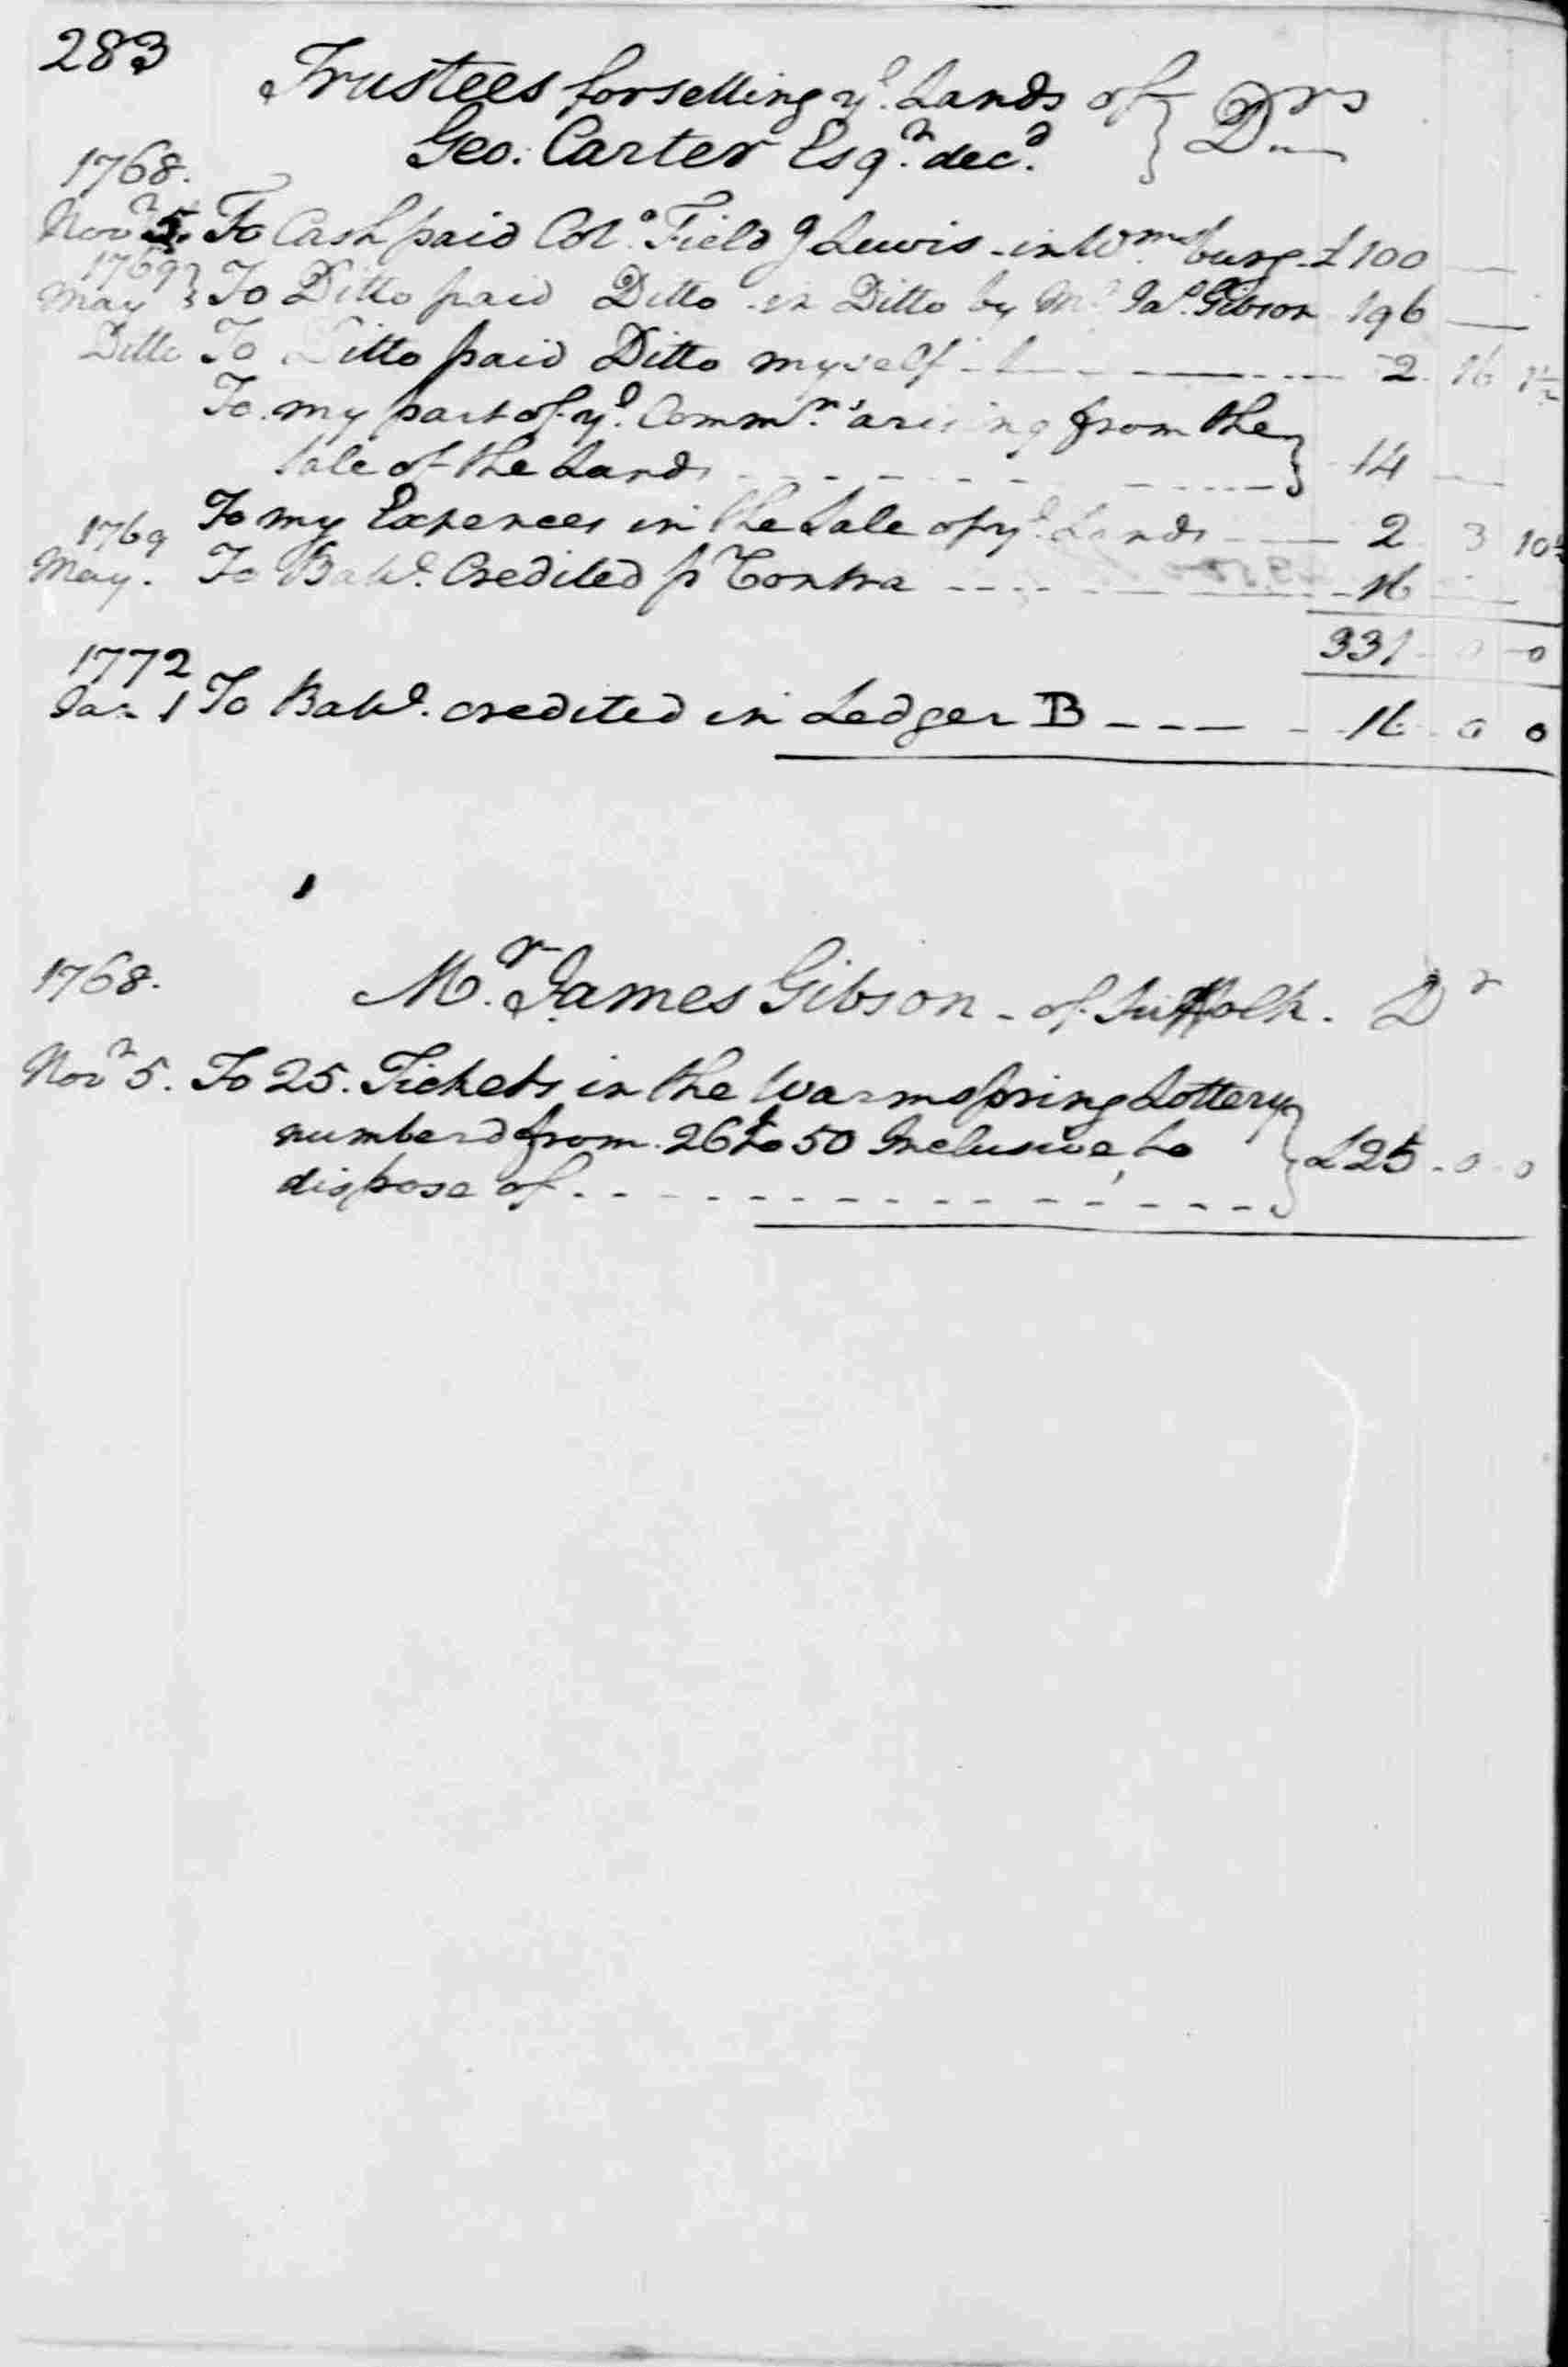 283
Trustees for selling ye. Lands of } Drs
Geo. Carter Esqr. decd.
1768.
Novr 5. To Cash paid Colo. Fieldg Lewis - in Wmsburg - £100
1769
May } To Ditto paid Ditto in Ditto by Mr. Jas. Gibson 196
Ditto To Ditto paid Ditto myself 2 16 1½
To my part of ye. Commns. arising from the
Sale of the Lands } 14
To my Expences in the Sale of ye. Lands 2 3 10½
1769
May. To Balle. Credited p Contra 16
331 0 0
1772
Jan 1 To Balle. credited in Ledger B 16 0 0
1768. Mr. James Gibson - of Suffolk. Dr
Novr 5. To 25. Tickets in the Warmspring Lottery
numberd from 26 to 50 Inclusive, to } £25 - 0 - 0
dispose of